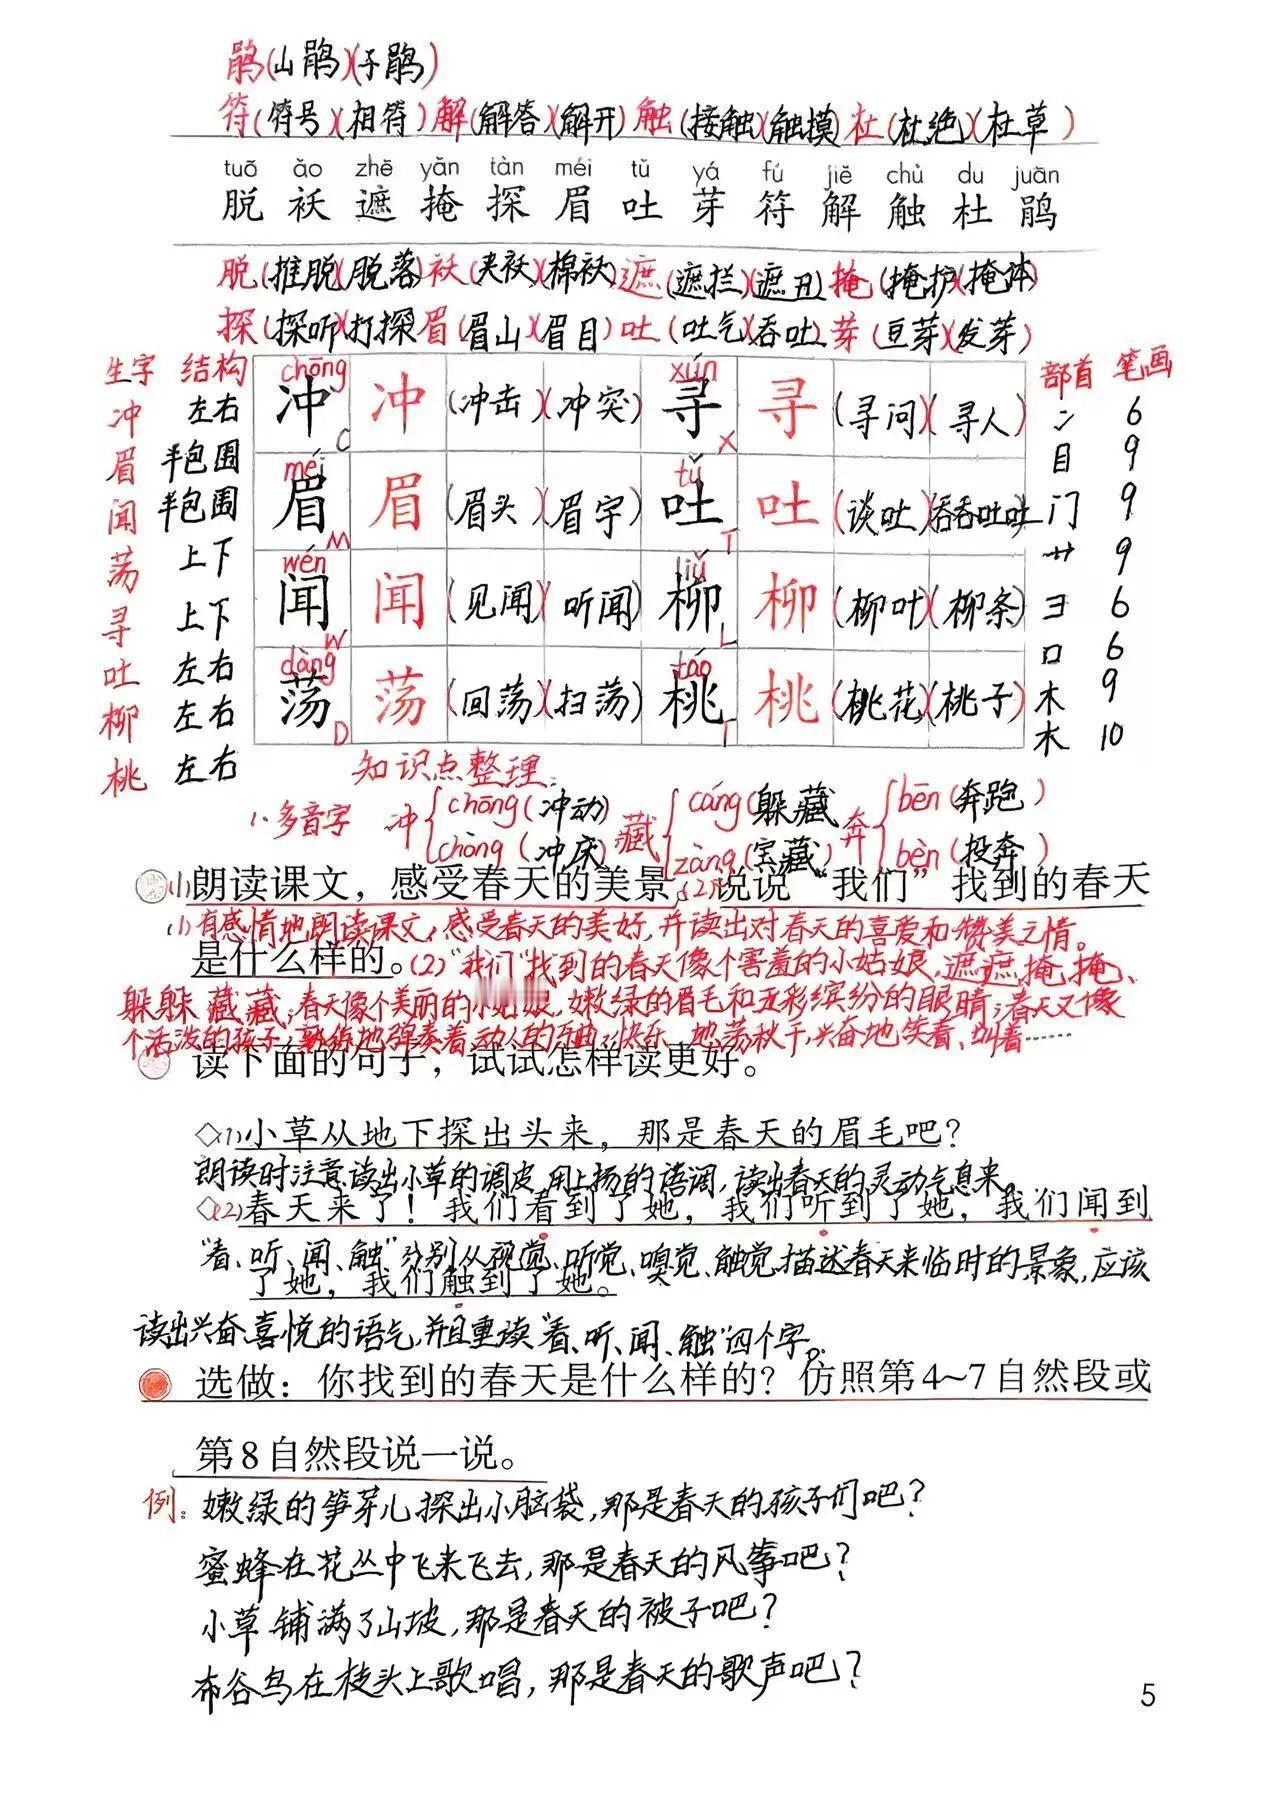 鹃(山鹃)(子鹃)
符(符号)(相符)解(解答)(解开)触(接触)(触摸)杜(杜绝)(杜草)
tuō ǎo zhē yǎn tàn méi tǔ yá fú jiě chù du juān
脱 袄 遮 掩 探 眉 吐 芽 符 解 触 杜 鹃
脱(推脱)(脱落)袄(夹袄)(棉袄)遮(遮拦)(遮丑)掩(掩护)(掩体)
探(探听)(打探)眉(眉山)(眉目)吐(吐气)(吞吐)芽(豆芽)(发芽)
生字 结构 chōng xún 部首 笔画
冲 左右 冲 冲 (冲击)(冲突) 寻 寻 (寻问)(寻人) 冫 6
C X
眉 半包围 méi tǔ 目 9
眉 眉 (眉头)(眉宇) 吐 吐 (谈吐)(吞吞吐吐)
闻 半包围 M T 门 9
荡 上下 wén liǔ 艹 9
闻 闻 (见闻)(听闻) 柳 柳 (柳叶)(柳条)
寻 上下 W L 彐 6
吐 左右 dàng táo 口 6
荡 荡 (回荡)(扫荡) 桃 桃 (桃花)(桃子)
柳 左右 D T 木 9
桃 左右 木 10
知识点整理
1、多音字 冲 chōng(冲动) chòng(冲床) 藏 cáng(躲藏) zàng(宝藏) 奔 bēn(奔跑) bèn(投奔)
(1)朗读课文，感受春天的美景。(2)说说“我们”找到的春天
(1)有感情地朗读课文，感受春天的美好，并读出对春天的喜爱和赞美之情。
是什么样的。(2)“我们”找到的春天像个害羞的小姑娘，遮遮掩掩、
躲躲藏藏；春天像个美丽的小姑娘，嫩绿的眉毛和五彩缤纷的眼睛；春天又像
个活泼的孩子，熟练地弹奏着动人的乐曲，快乐地荡秋千，兴奋地笑着、叫着……
读下面的句子，试试怎样读更好。
◇(1)小草从地下探出头来，那是春天的眉毛吧？
朗读时注意读出小草的调皮，用上扬的语调，读出春天的灵动气息来。
◇(2)春天来了！我们看到了她，我们听到了她，我们闻到
“看、听、闻、触”分别从视觉、听觉、嗅觉、触觉描述春天来临时的景象，应该
了她，我们触到了她。
读出兴奋、喜悦的语气，并且重读“看、听、闻、触”四个字。
选做：你找到的春天是什么样的？仿照第4~7自然段或
第8自然段说一说。
例：嫩绿的笋芽儿探出小脑袋，那是春天的孩子们吧？
蜜蜂在花丛中飞来飞去，那是春天的风筝吧？
小草铺满了山坡，那是春天的被子吧？
布谷鸟在枝头上歌唱，那是春天的歌声吧？
5